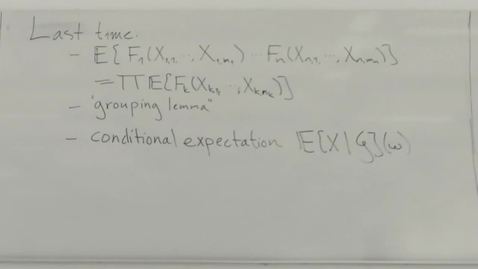 Last time:
- E[F₁(X₁₁, ..., X₁ₘ₁) ... Fₙ(Xₙ₁, ..., Xₙₘₙ)]
= ΠE[Fₖ(Xₖ₁, ..., Xₖₘₖ)]
- "grouping lemma"
- conditional expectation E[X|G](ω)